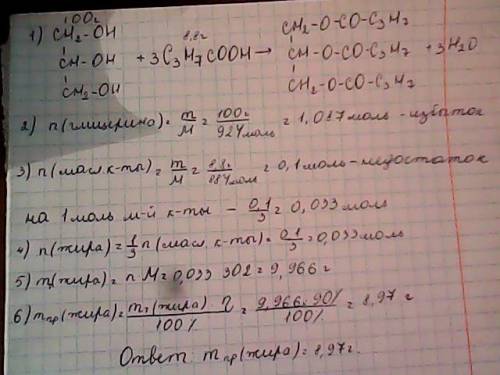 100г 8,8г
1) CH₂-OH CH₂-O-CO-C₃H₇
CH-OH + 3C₃H₇COOH → CH-O-CO-C₃H₇ + 3H₂O
CH₂-OH CH₂-O-CO-C₃H₇
2) n(глицерина) = m/M = 100г/92г/моль = 1,087 моль - избыток
3) n(масл. к-ты) = m/M = 8,8г/88г/моль = 0,1 моль - недостаток
на 1 моль м-й к-ты - 0,1/3 = 0,033 моль
4) n(жира) = 1/3 n(масл. к-ты) = 0,1/3 = 0,033 моль
5) m(жира) = n M = 0,033 302 = 9,966 г
6) mпр(жира) = mт(жира) · η/100% = 9,966 · 90%/100% = 8,97 г
Ответ: mпр(жира) = 8,97г.